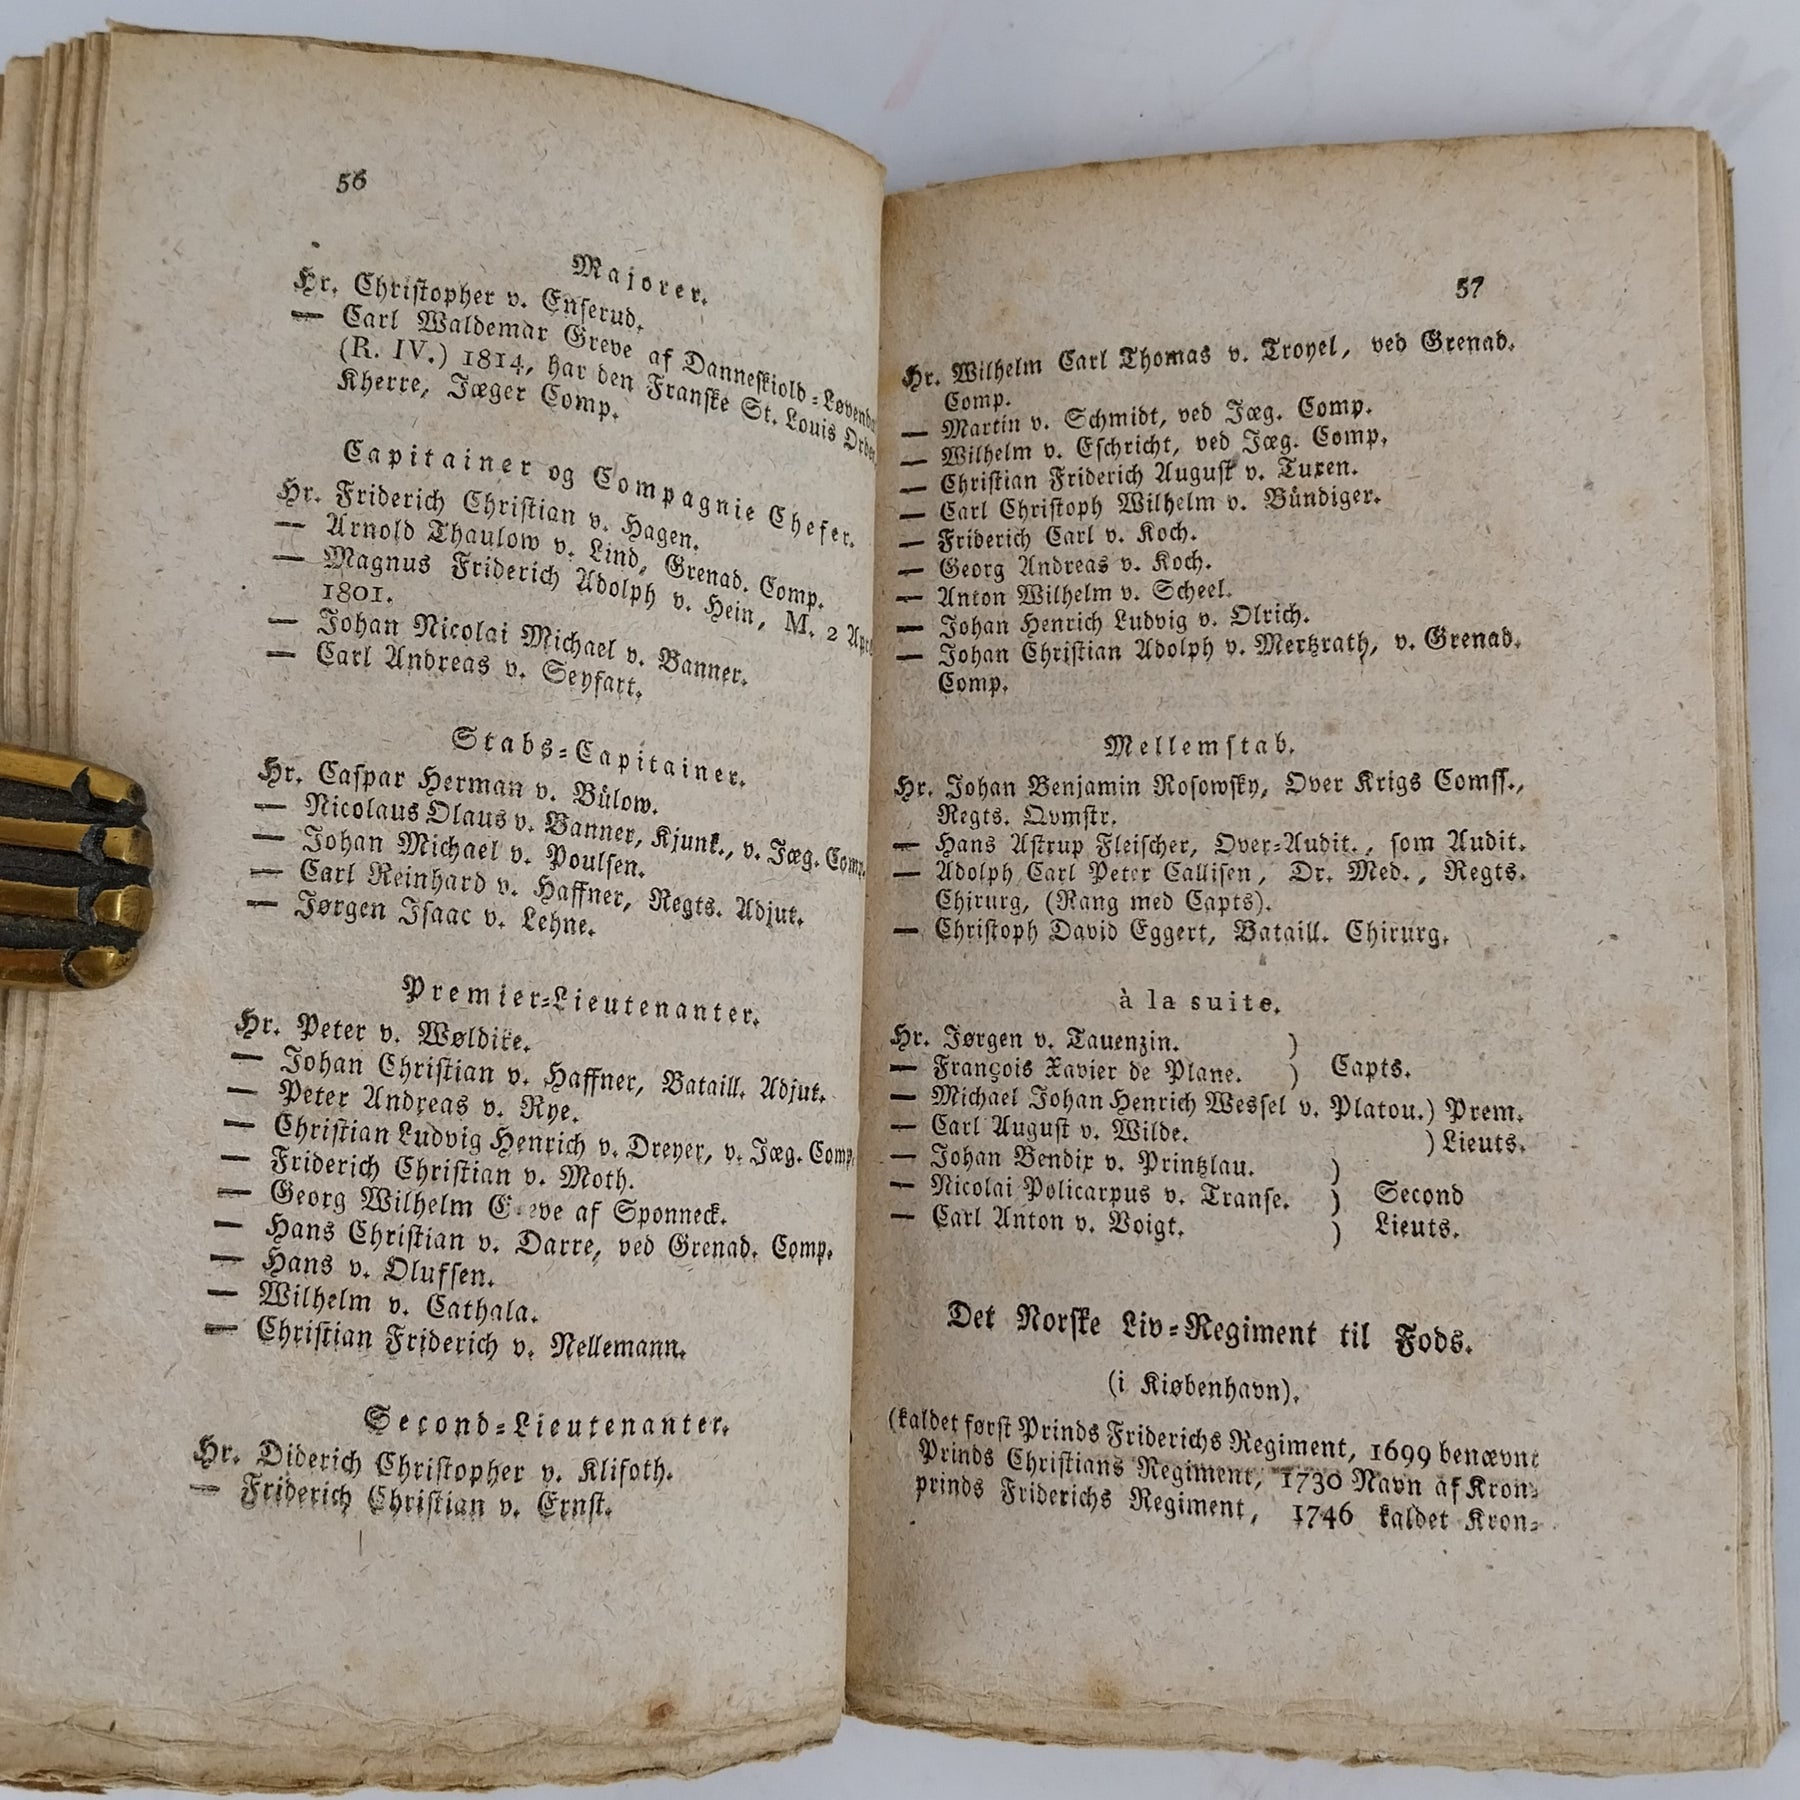 56
Majorer.
Hr. Christopher v. Enserud.
— Carl Waldemar Greve af Danneskiold-Løvend
(R. IV.) 1814, har den Franske St. Louis Orde
Kherre, Jæger Comp.
Capitainer og Compagnie Chefer.
Hr. Friderich Christian v. Hagen.
— Arnold Thaulow v. Lind, Grenad. Comp.
— Magnus Friderich Adolph v. Hein, M. 2 Apr
1801.
— Johan Nicolai Michael v. Banner.
— Carl Andreas v. Seyfart.
Stabs-Capitainer.
Hr. Caspar Herman v. Bülow.
— Nicolaus Olaus v. Banner, Kjunk., v. Jæg. Comp.
— Johan Michael v. Poulsen.
— Carl Reinhard v. Haffner, Regts. Adjut.
— Jørgen Isaac v. Lehne.
Premier-Lieutenanter.
Hr. Peter v. Wøldike.
— Johan Christian v. Haffner, Bataill. Adjut.
— Peter Andreas v. Rye.
— Christian Ludvig Henrich v. Dreyer, v. Jæg. Comp.
— Friderich Christian v. Moth.
— Georg Wilhelm Greve af Sponneck.
— Hans Christian v. Darre, ved Grenad. Comp.
— Hans v. Olufsen.
— Wilhelm v. Cathala.
— Christian Friderich v. Nellemann.
Second-Lieutenanter.
Hr. Diderich Christopher v. Klifoth.
— Friderich Christian v. Ernst.
57
Hr. Wilhelm Carl Thomas v. Troyel, ved Grenad.
Comp.
— Martin v. Schmidt, ved Jæg. Comp.
— Wilhelm v. Eschricht, ved Jæg. Comp.
— Christian Friderich August v. Tuxen.
— Carl Christoph Wilhelm v. Bündiger.
— Friderich Carl v. Koch.
— Georg Andreas v. Koch.
— Anton Wilhelm v. Scheel.
— Johan Henrich Ludvig v. Olrich.
— Johan Christian Adolph v. Mertzrath, v. Grenad.
Comp.
Mellemstab.
Hr. Johan Benjamin Rosowsky, Over Krigs Comss.,
Regts. Qvmstr.
— Hans Astrup Fleischer, Over-Audit., som Audit.
— Adolph Carl Peter Callisen, Dr. Med., Regts.
Chirurg, (Rang med Capts).
— Christoph David Eggert, Bataill. Chirurg.
à la suite.
Hr. Jørgen v. Tauenzin. )
— François Xavier de Plane. ) Capts.
— Michael Johan Henrich Wessel v. Platou. ) Prem.
— Carl August v. Wilde. ) Lieuts.
— Johan Bendix v. Printzlau. )
— Nicolai Policarpus v. Transe. ) Second
— Carl Anton v. Voigt. ) Lieuts.
Det Norske Liv-Regiment til Fods.
(i Kiøbenhavn).
(kaldet først Prinds Friderichs Regiment, 1699 benævnt
Prinds Christians Regiment, 1730 Navn af Kron-
prinds Friderichs Regiment, 1746 kaldet Kron-